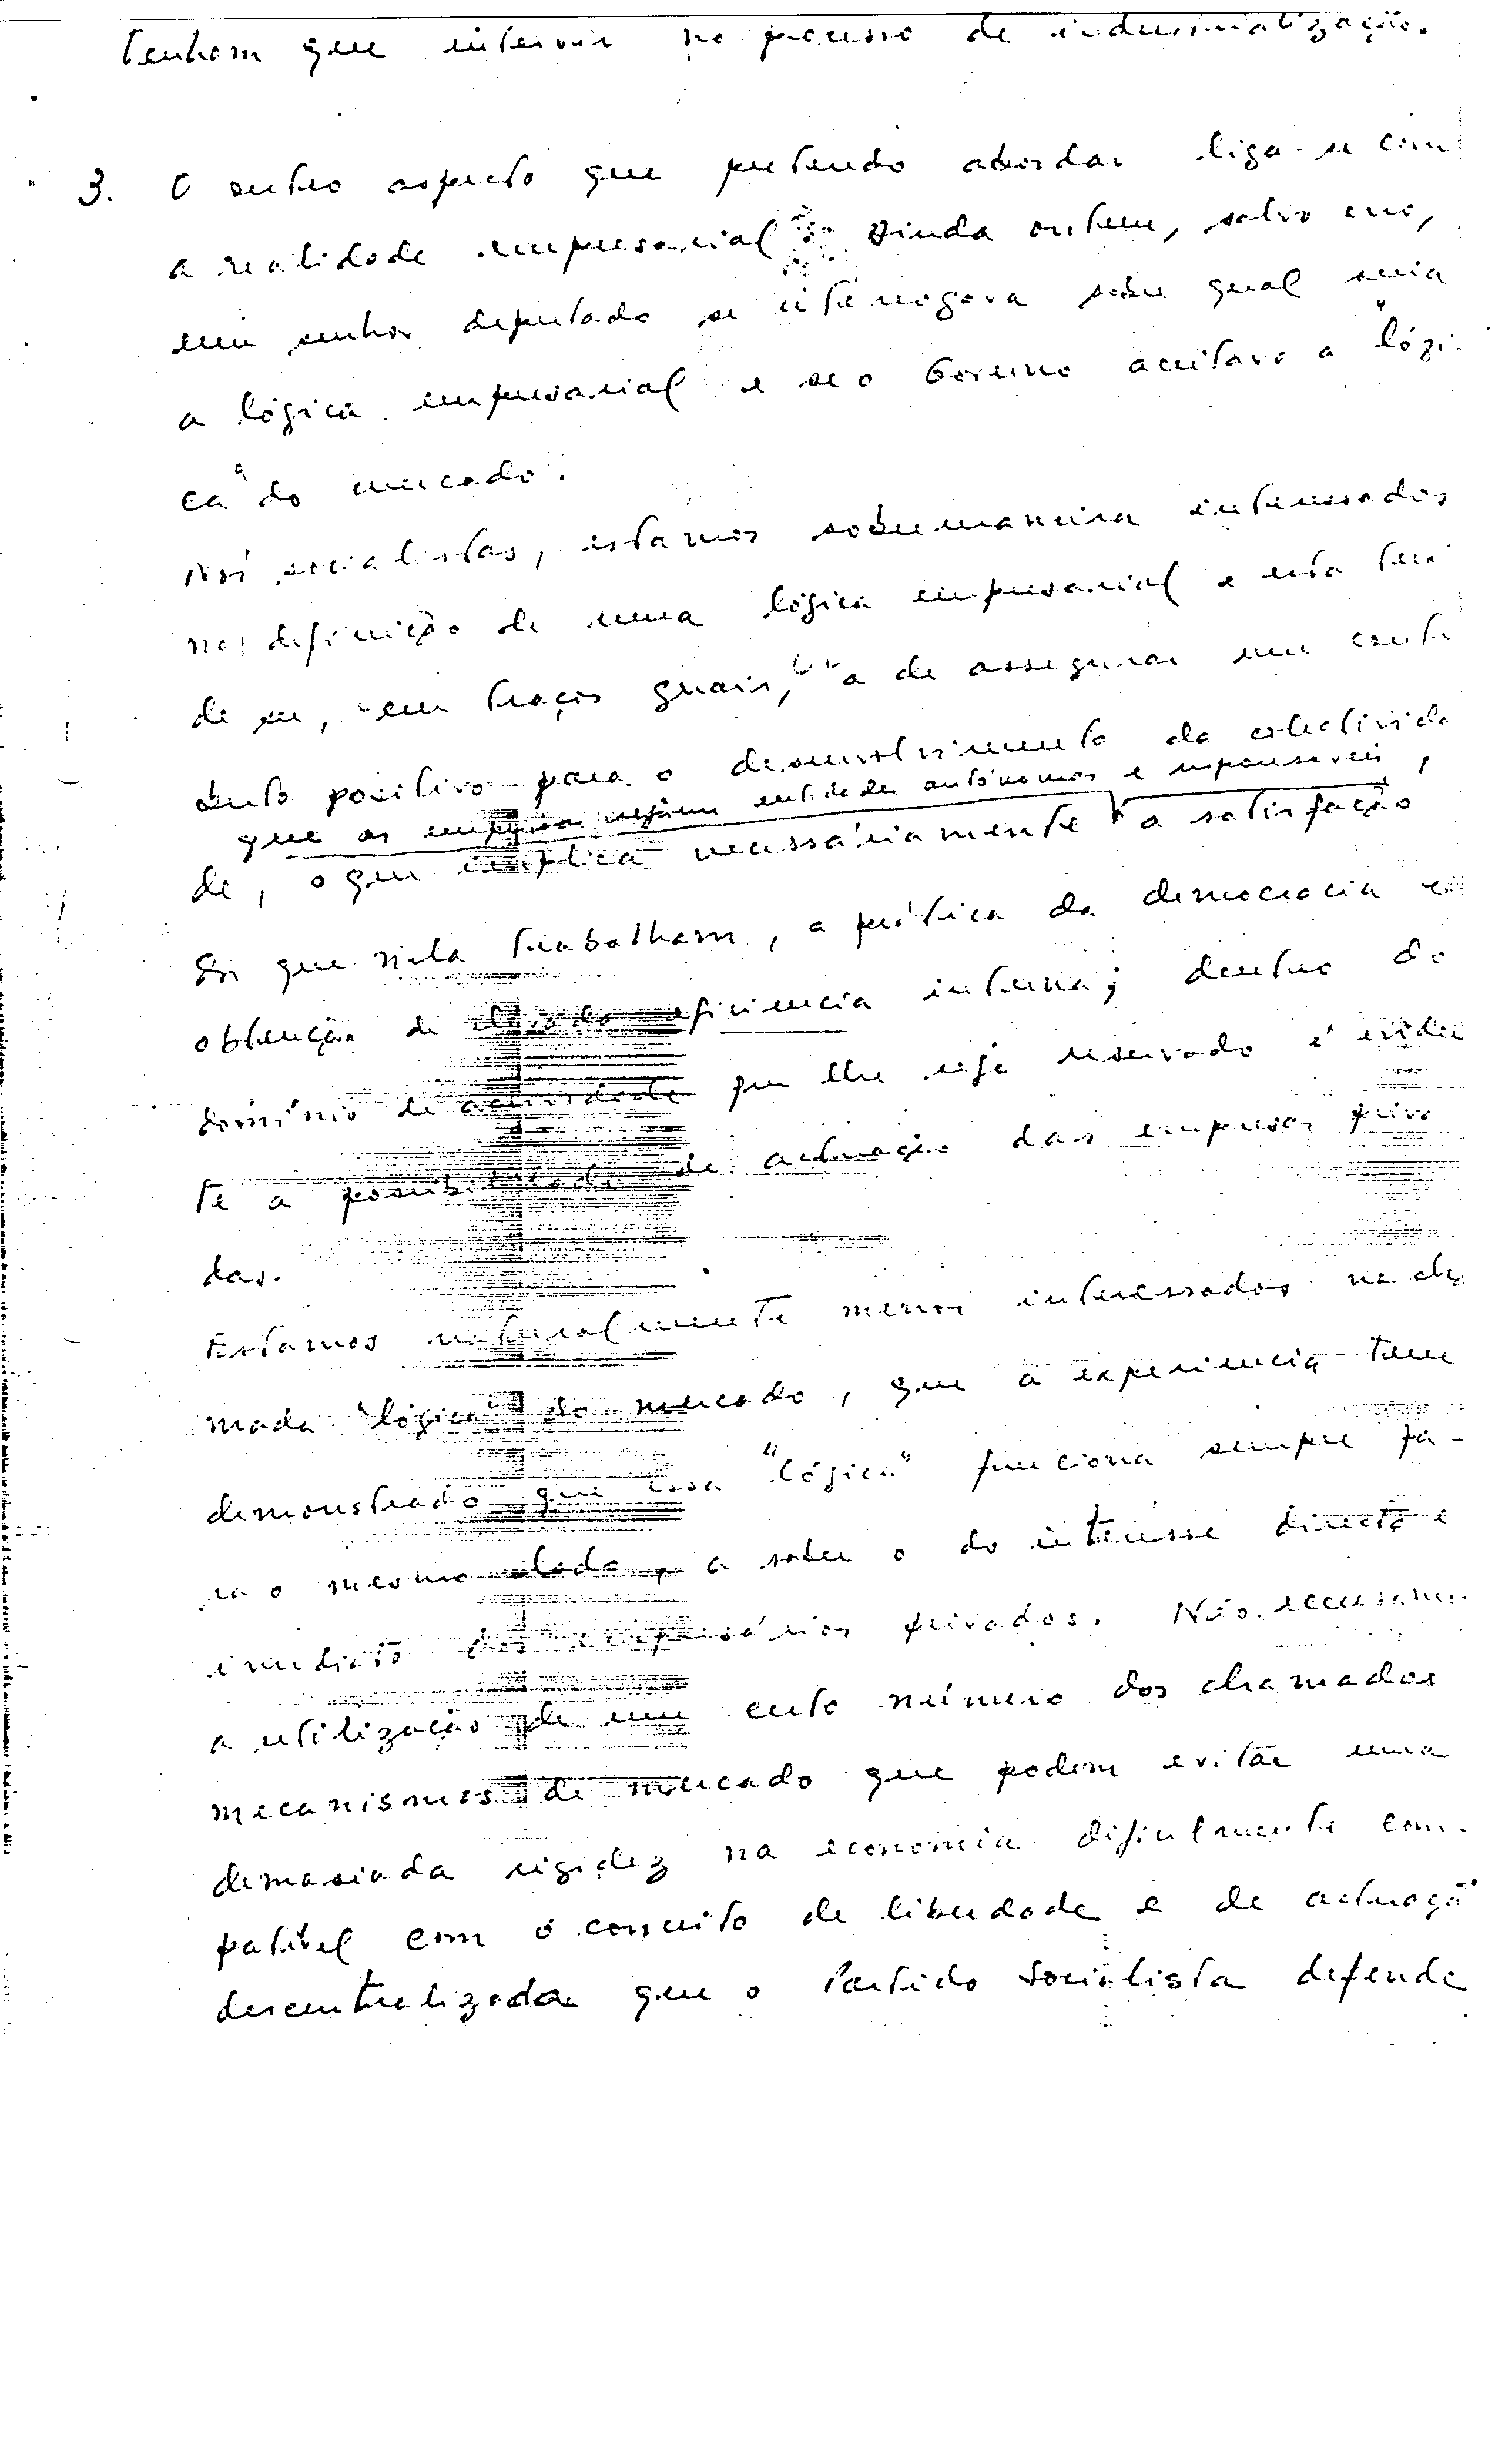 tenham que intervir no processo de industrialização.
3. O outro aspecto que pretendo abordar liga-se com
a realidade empresarial. Ainda ontem, salvo erro,
um senhor deputado se interrogava sobre qual seria
a lógica empresarial e se o Governo aceitava a "lógi-
ca" do mercado.
Nós socialistas, estamos sobremaneira interessados
na definição de uma lógica empresarial e esta tem
de ser, em traços gerais, a de assegurar um contri
buto positivo para o desenvolvimento da colectivida
que as empresas sejam entidades autónomas e responsáveis,
de, o que implica necessáriamente a satisfação
dos que nela trabalham, a prática da democracia e
obtenção de elevada eficiencia interna; dentro do
domínio de actividade que lhe seja reservado é eviden
te a possibilidade de actuação das empresas priva
das.
Estamos naturalmente menos interessados na cha
mada "lógica" do mercado, que a experiencia tem
demonstrado que essa "lógica" funciona sempre pa-
ra o mesmo lado, a saber o do interesse directo e
imediato dos empresários privados. Não recusamos
a utilização de um certo número dos chamados
mecanismos de mercado que podem evitar uma
demasiada rigidez na economia dificilmente com-
patível com o conceito de liberdade e de actuação
descentralizada que o Partido Socialista defende